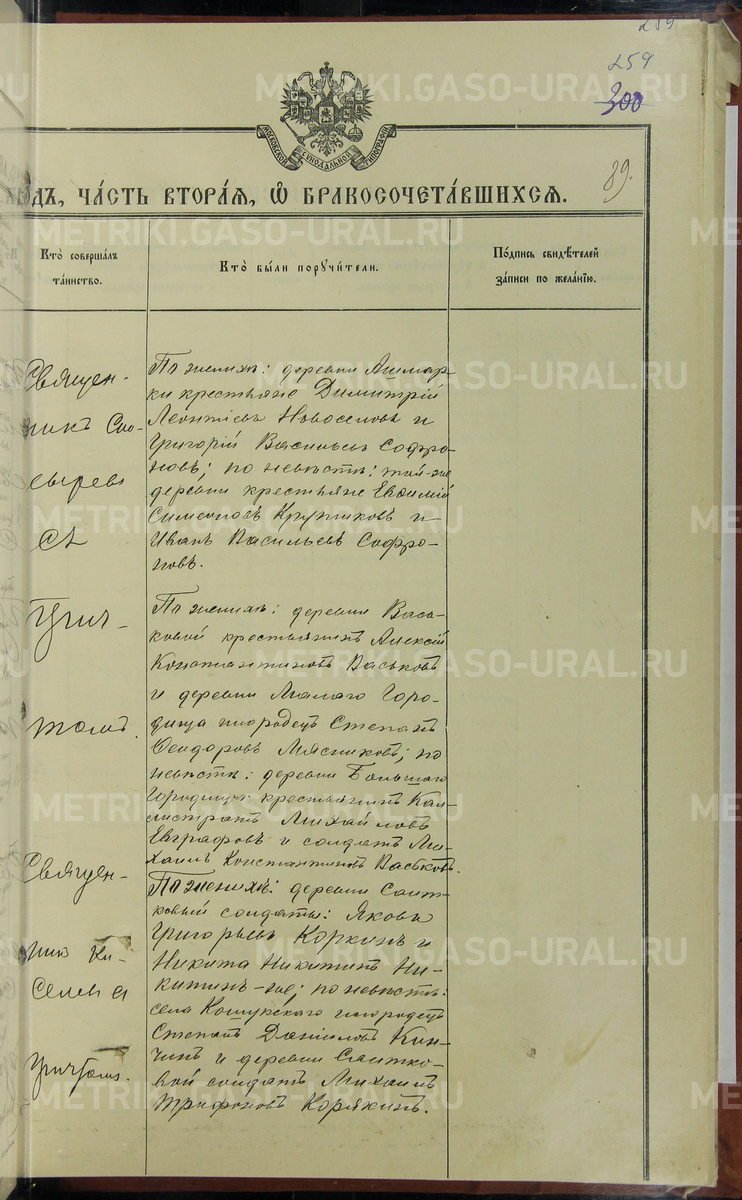 259
259
300
МОСКОВСКОЙ СѴНОДАЛЬНОЙ ТИПОГРАФІИ
89.
ЧА́СТЬ ВТОРА́Я, Ѡ҆ БРАКОСОЧЕТА́ВШИХСЯ.
Кто̀ соверша́лъ
та́инство.
Кто̀ бы́ли поручи́тели.
По́дпись свидѣ́телей
за́писи по жела́нію.
Священ-
никъ Сло-
сыревъ
съ
Прич-
томъ.
Священ-
никъ Ки-
селевъ
Причтомъ.
По женихѣ: деревни Ашмар-
ки крестьяне Димитрій
Леонтіевъ Новоселовъ и
Григорій Васильевъ Софро-
новъ; по невѣстѣ: той-же
деревни крестьяне Евѳимій
Симеоновъ Крутиковъ и
Иванъ Васильевъ Софро-
новъ.
По женихѣ: деревни Вась-
ковой крестьянинъ Алексій
Константиновъ Васьковъ
и деревни Малаго Горо-
дища инородецъ Степанъ
Ѳеодоровъ Мясниковъ; по
невѣстѣ: деревни Большаго
Городища крестьянинъ Кал-
листратъ Михайловъ
Евграфовъ и солдатъ Ми-
хаилъ Константиновъ Васьковъ.
По женихѣ: деревни Саит-
ковый солдаты: Яковъ
Григорьевъ Коркинъ и
Никита Никитинъ Ни-
китинъ-же; по невѣстѣ:
села Кошукскаго инородецъ
Степанъ Даниловъ Кин-
чинъ и деревни Саитко-
вой солдатъ Михаилъ
Трифоновъ Корякинъ.
METRIKI.GASO-URAL.RU